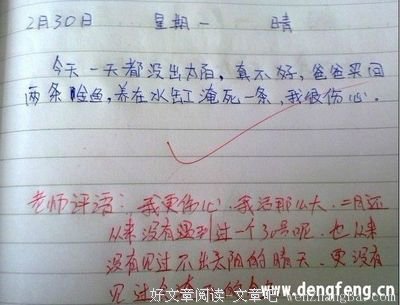 2月30日 星期一 晴
今天一天都没出太阳，真不好，爸爸买回
两条金鱼，养在水缸淹死一条，我很伤心。
老师评语：我更伤心．我活那么大，二月还
从来没有遇到过一个30号呢，也从来
没有见过不出太阳的晴天．更没有
见过
www.dengfeng.cn
好文章阅读-文章吧 wenzhangba.com